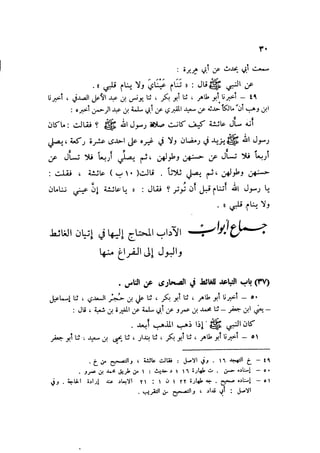 ٣٠
سمعت أبي يحدث عن أبي هريرة :
عن النبي ﷺ قال : « تنام عيناي ولا ينام قلبي » .
٤٩ - أخبرنا أبو طاهر ، نا أبو بكر ، نا يونس بن عبد الأعلى الصدفي ، أخبرنا
ابن وهب أن مالكاً حدثه عن سعيد المقبري عن أبي سلمة بن عبد الرحمن أخبره :
أنه سأل عائشة كيف كانت صلاة رسول الله ﷺ ؟ فقالت : ما كان
رسول الله ﷺ يزيد في رمضان ولا في غيره على احدى عشرة ركعة ، يصلي
أربعاً فلا تسأل عن حسنهن وطولهن ، ثم يصلي أربعاً فلا تسأل عن
حسنهن وطولهن ، ثم يصلي ثلاثاً . قالت ( ١٠ ب ) عائشة : فقلت :
يا رسول الله أتنام قبل أن توتر ؟ فقال : « يا عائشة إن عيني تنامان
ولا ينام قلبي » .
جماع أبواب الآداب المحتاج إليها في إتيان الغائط
والبول إلى الفراغ منها
(٣٧) باب التباعد للغائط في الصحارى عن الناس .
٥٠ - أخبرنا أبو طاهر ، نا أبو بكر ، نا علي بن حُجْر السعدي ، نا إسماعيل
- يعني ابن جعفر - نا محمد بن عمرو عن أبي سلمة عن المغيرة بن شعبة ، قال :
كان النبي ﷺ إذا ذهب المذهب أبعد .
٥١ - أخبرنا أبو طاهر ، نا أبو بكر ، نا بندار ، نا يحيى بن سعيد ، نا أبو جعفر
٤٩ - خ التهجد ١٦ . وفي الاصل : فقالت عائشة ، والتصحيح من خ .
٥٠ - إسناده حسن . ت طهارة ١٦ ؛ د حديث : ١ من طريق محمد بن عمرو .
٥١ - إسناده صحيح . جه طهارة ٢٢ ؛ ن ١ : ٢١ الابعاد عند إرادة الحاجة . وفي
الاصل : أبي قداد ، والتصحيح من التقريب .